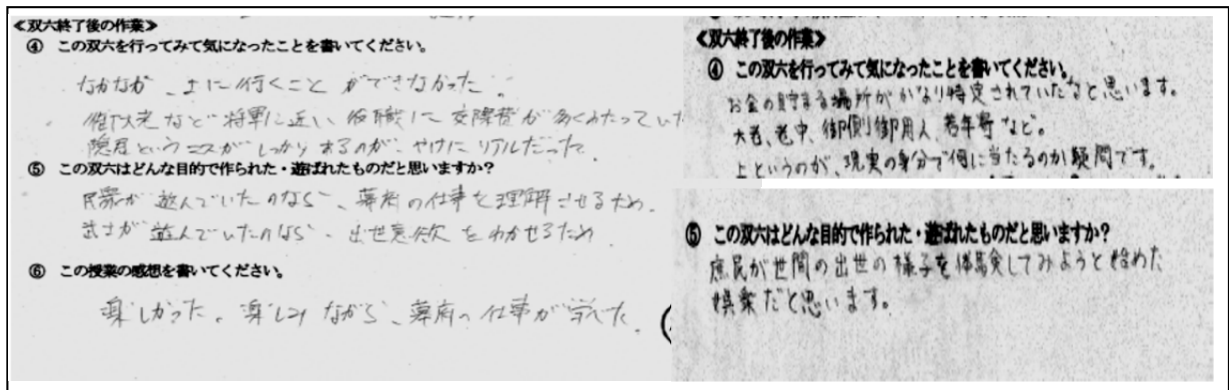 ≪双六終了後の作業≫
④ この双六を行ってみて気になったことを書いてください。
なかなか、上に行くことができなかった。
など将軍に近い役職に交際費が多くかかっていた
隠居というマスがしっかりあるのが、やけにリアルだった
⑤ この双六はどんな目的で作られた・遊ばれたものだと思いますか?
民衆が遊んでいたのなら、幕府の仕事を理解させるため。
武士が遊んでいたのなら、出世意欲をわかせるため
⑥ この授業の感想を書いてください。
楽しかった。楽しみながら、幕府の仕事が学べた。
≪双六終了後の作業≫
④ この双六を行ってみて気になったことを書いてください。
お金の貯まる場所がかなり特定されていたなと思います。
大老、老中、御側御用人、若年寄など。
上というのが、現実の身分で何に当たるのか疑問です。
⑤ この双六はどんな目的で作られた・遊ばれたものだと思いますか?
庶民が世間の出世の様子を体験してみようと始めた
娯楽だと思います。